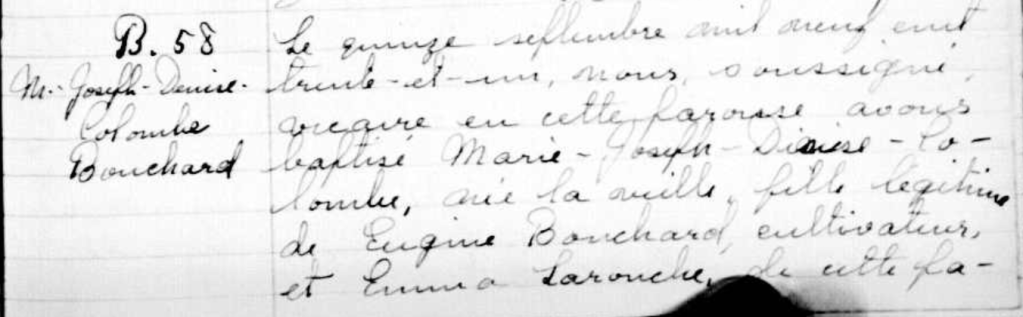 B. 58
M.-Joseph-Denise-
Colombe
Bouchard
Le quinze septembre mil neuf cent
trente-et-un, nous, soussigné,
vicaire en cette paroisse avons
baptisé Marie-Joseph-Denise-Co-
lombe, née la veille, fille légitime
de Eugène Bouchard, cultivateur,
et Emma Larouche, de cette pa-